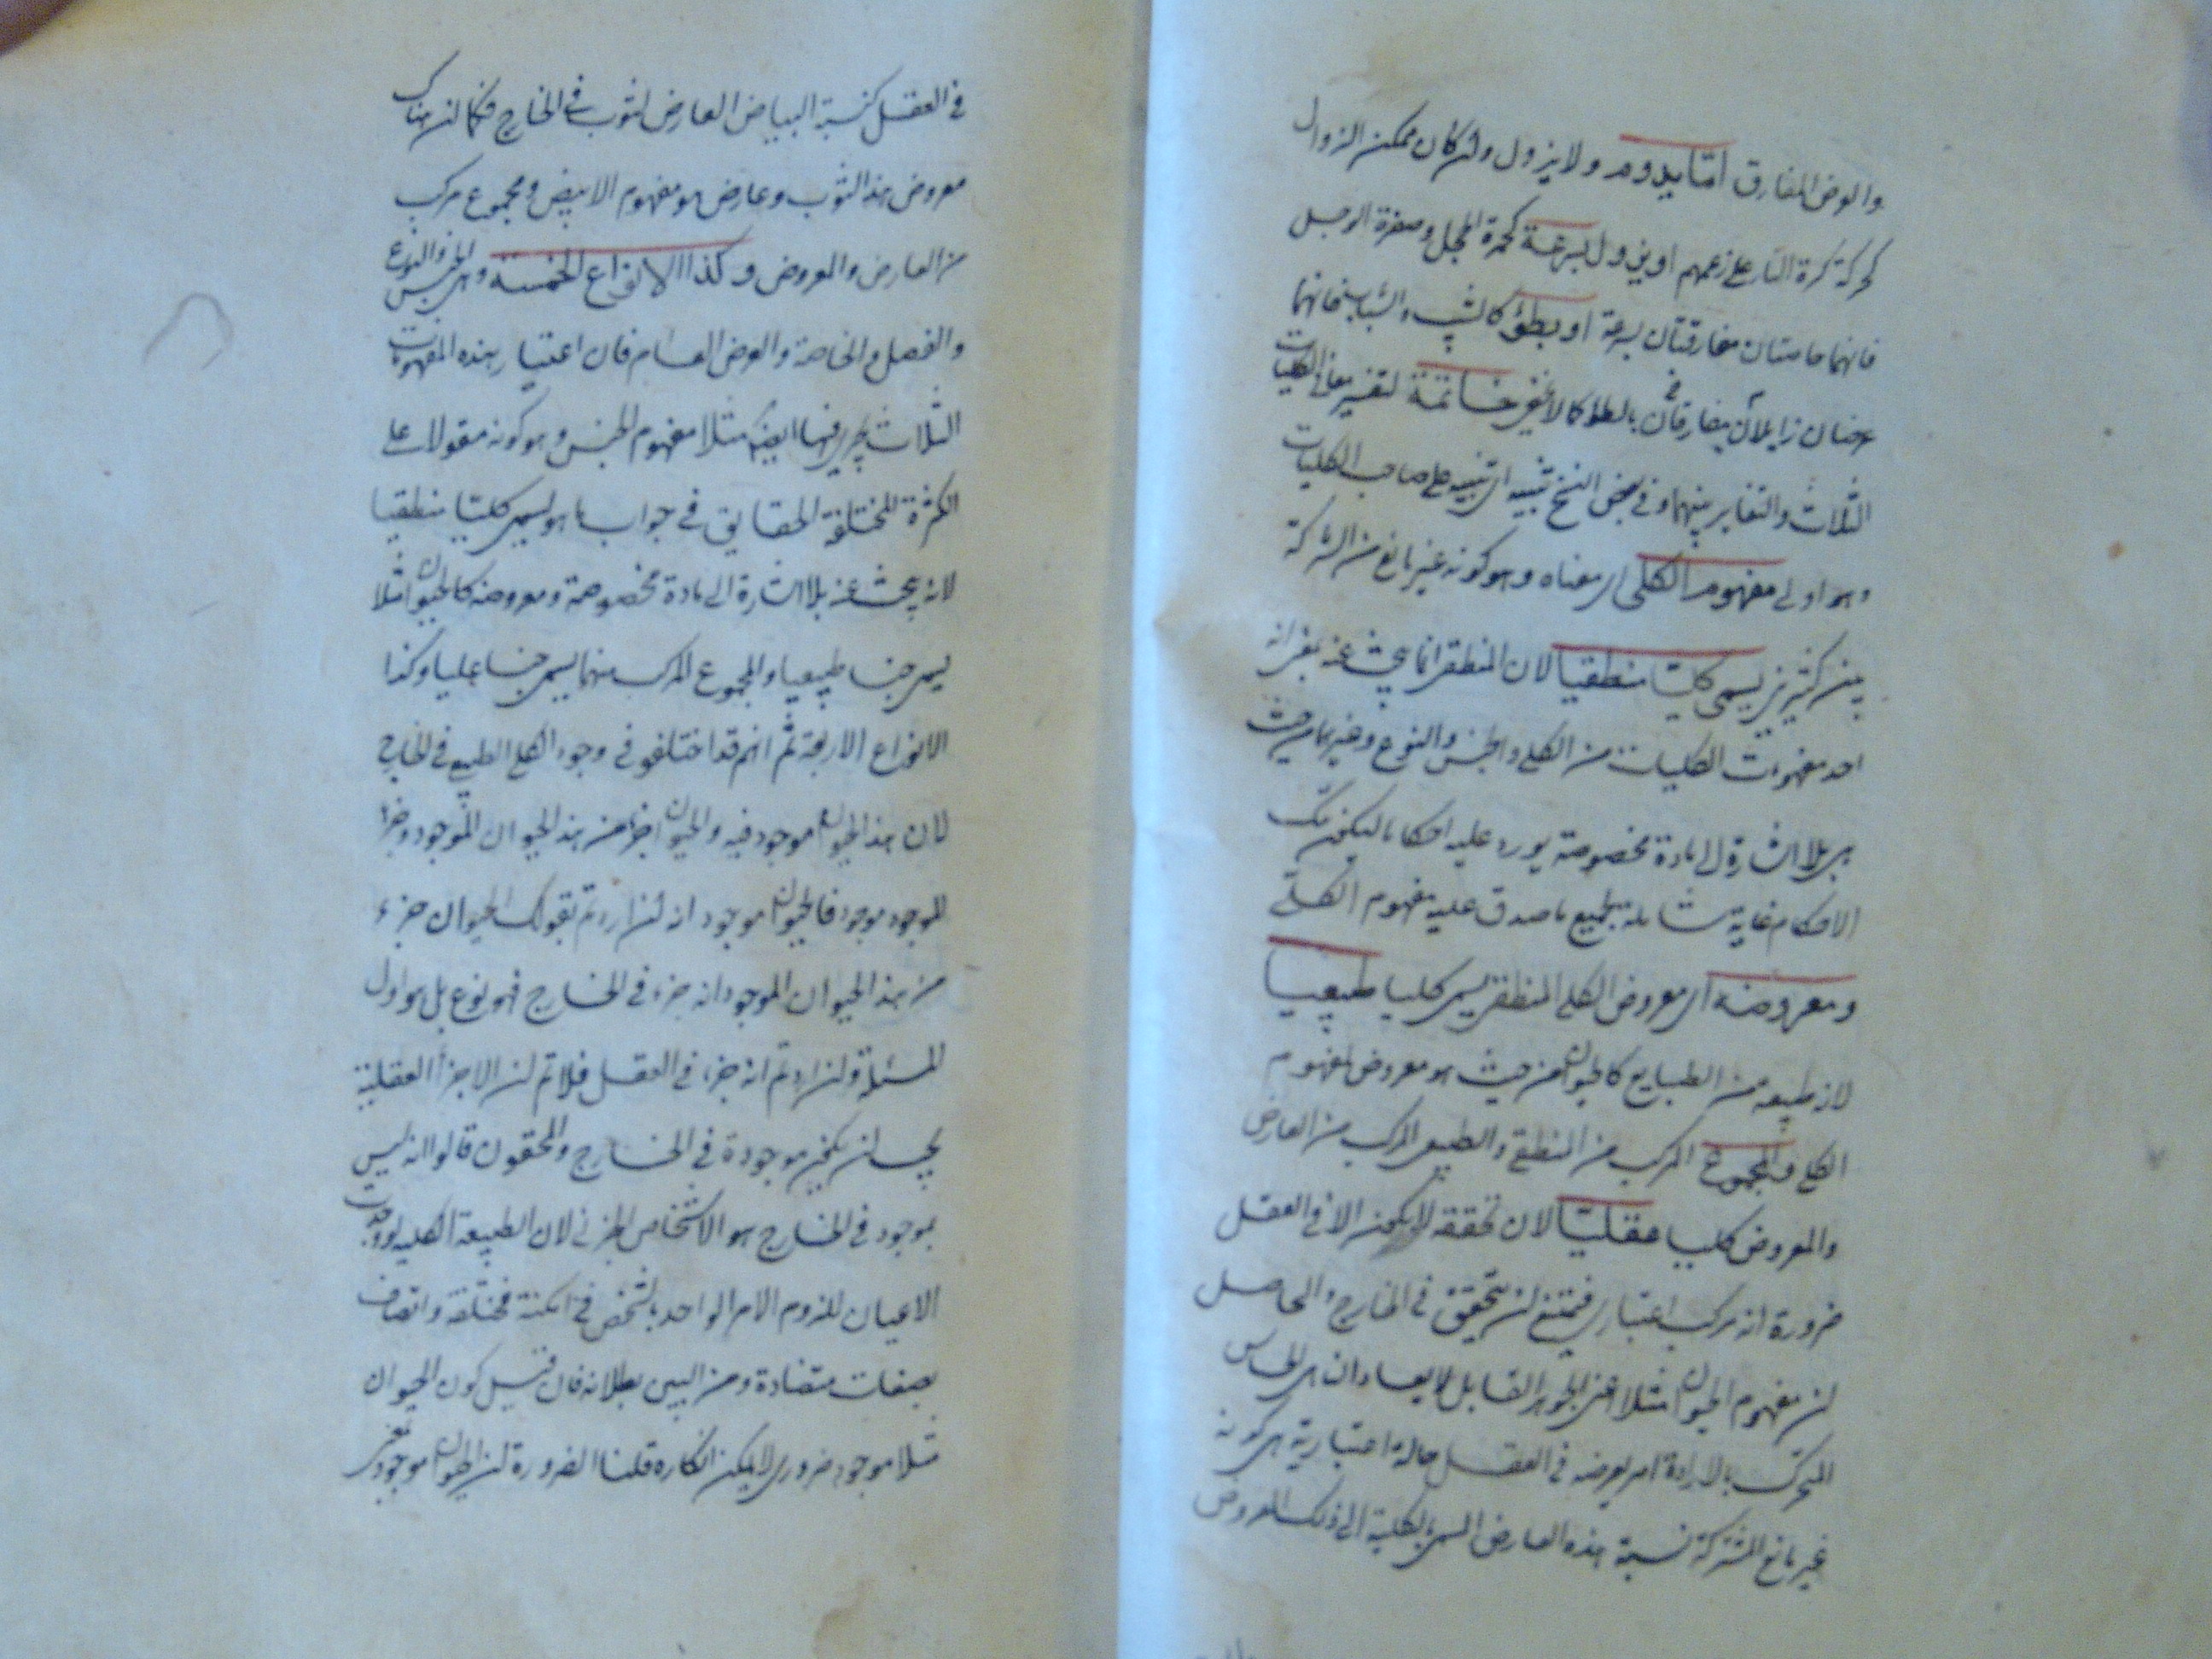 والعرض المفارق امّا يدوم ولا يزول وان كان ممكن الزوال
كحركة كرة النار على زعمهم او يزول بسرعة كحمرة الخجل وصفرة الوجل
فانهما مفارقتان بسرعة او بطؤ كالشيب والشباب فانهما
عرضان زايلان مفارقان بالبطؤ كما لا يخفى خاتمة لتفسير معانى الكليات
الثلاث والتغاير بينهما وفى بعض النسخ تنبيه اى تنبيه على الكليات
وهو اولى مفهوم الكلى اى معناه وهو كونه غير مانع من الشركة
بين كثيرين يسمى كليّا منطقيا لان المنطقى انما يبحث عنه
احد مفهومات الكليات من الكلى والجنس والنوع وغيرهما من حيث
هى بلا اشارة الى مادة مخصوصة يورد عليه احكاما ليكون تلك
الاحكام شاملة لجميع ما صدق عليه مفهوم الكلّى
ومعروضه اى معروض الكلى المنطقى يسمى كليا طبيعيا
لانه طبيعة من الطبايع كالحيوان من حيث هو معروض لمفهوم
الكلى والمجموع المركب من المنطقى والطبيعى المركب من العارض
والمعروض كليا عقليّا لان تحققه لا يمكن الا فى العقل
ضرورة انه مركب اعتبارى فيمتنع ان يتحقق فى الخارج والحاصل
ان مفهوم الحيوان مثلا اعنى الجوهر القابل للابعاد الحساس
المتحرك بالارادة امر يعرضه فى العقل حالة اعتبارية هى كونه
غير مانع الشركة نسبة هذه العارض المسمى بالكلية الى ذلك المعروض
فى العقل كنسبة البياض العارض لثوب فى الخارج فكما ان هناك
معروض هذا الثوب وعارض هو مفهوم الابيض ومجموع مركب
من العارض والمعروض وكذا الانواع الخمسة وهى الجنس والنوع
والفصل والخاصة والعرض العام فان اعتبار هذه المفهومات
الثلاث يجرى فيها ايضا مثلا مفهوم الجنس وهو كونه مقولا على
الكثرة المختلفة الحقايق فى جواب ما هو يسمى كليّا منطقيا
لانه يبحث عنه بلا اشارة الى مادة مخصوصة ومعروضه كالحيوان مثلا
يسمى جنسا طبيعيا والمجموع المركب منهما يسمى جنسا عقليا وكذا
الانواع الاربعة ثم انهم قد اختلفو فى وجود الكلى الطبيعى فى الخارج
لان هذا الحيوان موجود فيه والحيوان جزء من هذا الحيوان الموجود وجزء
الموجود موجود فالحيوان موجود انه ان اردتم بقولك الحيوان جزء
من هذا الحيوان الموجود انه جزء فى الخارج فهو نوع بل هو اول
المسئلة وان اردتم انه جزء فى العقل فلا تم ان الاجزاء العقلية
يجب ان يكون موجودة فى الخارج والمحققون قالوا انه ليس
بموجود فى الخارج هو الاشخاص لان الطبيعة الكلية لو وجدت
الاعيان للزوم الامر الواحد بالشخص فى امكنة مختلفة واتصاف
بصفات متضادة ومن البين بطلانه فان قيل كون الحيوان
مثلا موجود ضرورى لا يمكن انكاره قلنا الضرورة ان الحيوان موجود